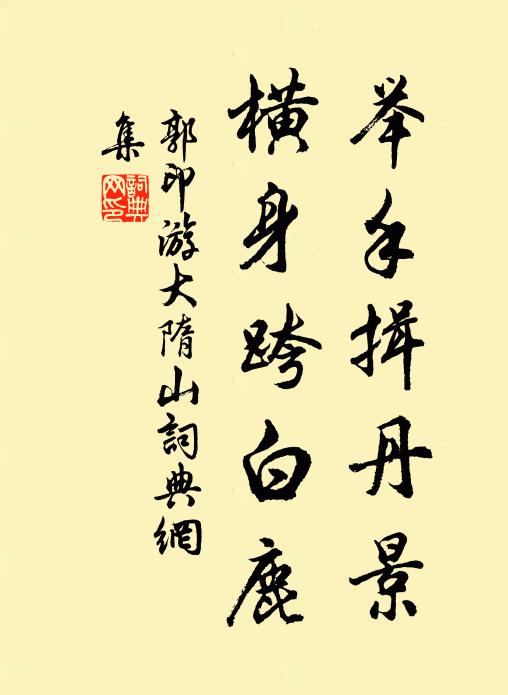 举手揖丹景
横身跨白鹿
郭印游大隋山詞典網
集
詞典
网印